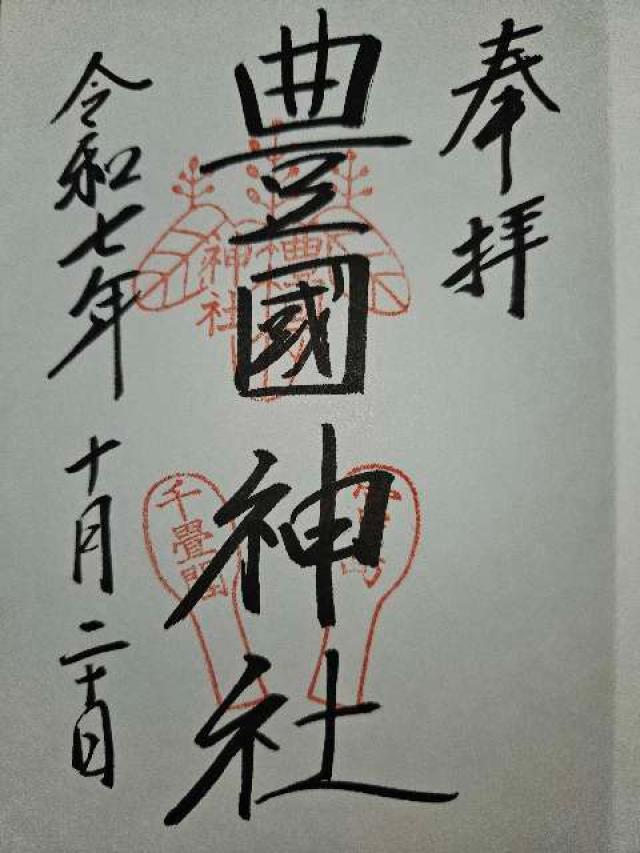 奉拝
豊國神社
令和七年十月二十日
神社
千畳閣